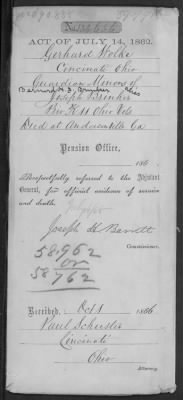 No
ACT OF JULY 14, 1862.
Gerhard Wolke
Cincinati Ohio
Guardian Minors of
Joseph Brinker
Died at Andersonville Ga
Pension Office,
186 .
Respectfully referred to the Adjutant
General, for official evidence of service
and death.
Joseph H Barrett
Commissioner.
58,962
or
58762
Received, Oct 1 1866
Paul Schuster
Cincinati
Ohio
Attorney.